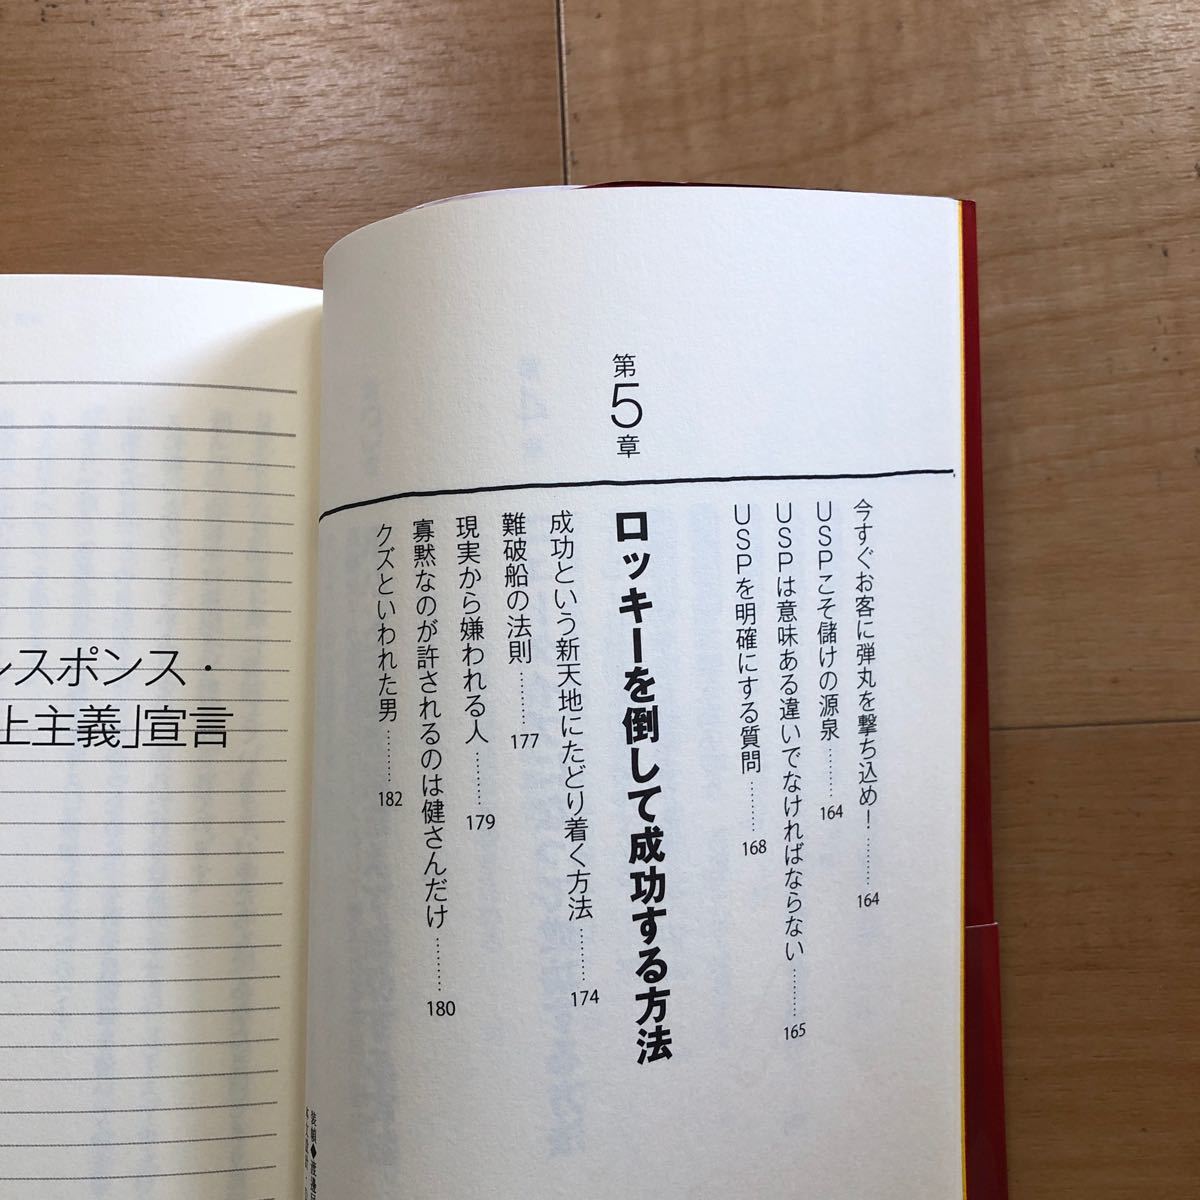 今すぐお客に弾丸を撃ち込め！………164
USPこそ儲けの源泉………164
USPは意味ある違いでなければならない………165
USPを明確にする質問………168
第5章
ロッキーを倒して成功する方法
成功という新天地にたどり着く方法………174
難破船の法則………177
現実から嫌われる人………179
寡黙なのが許されるのは健さんだけ………180
クズといわれた男………182
装幀◆渡邊
レスポンス・
上主義」宣言